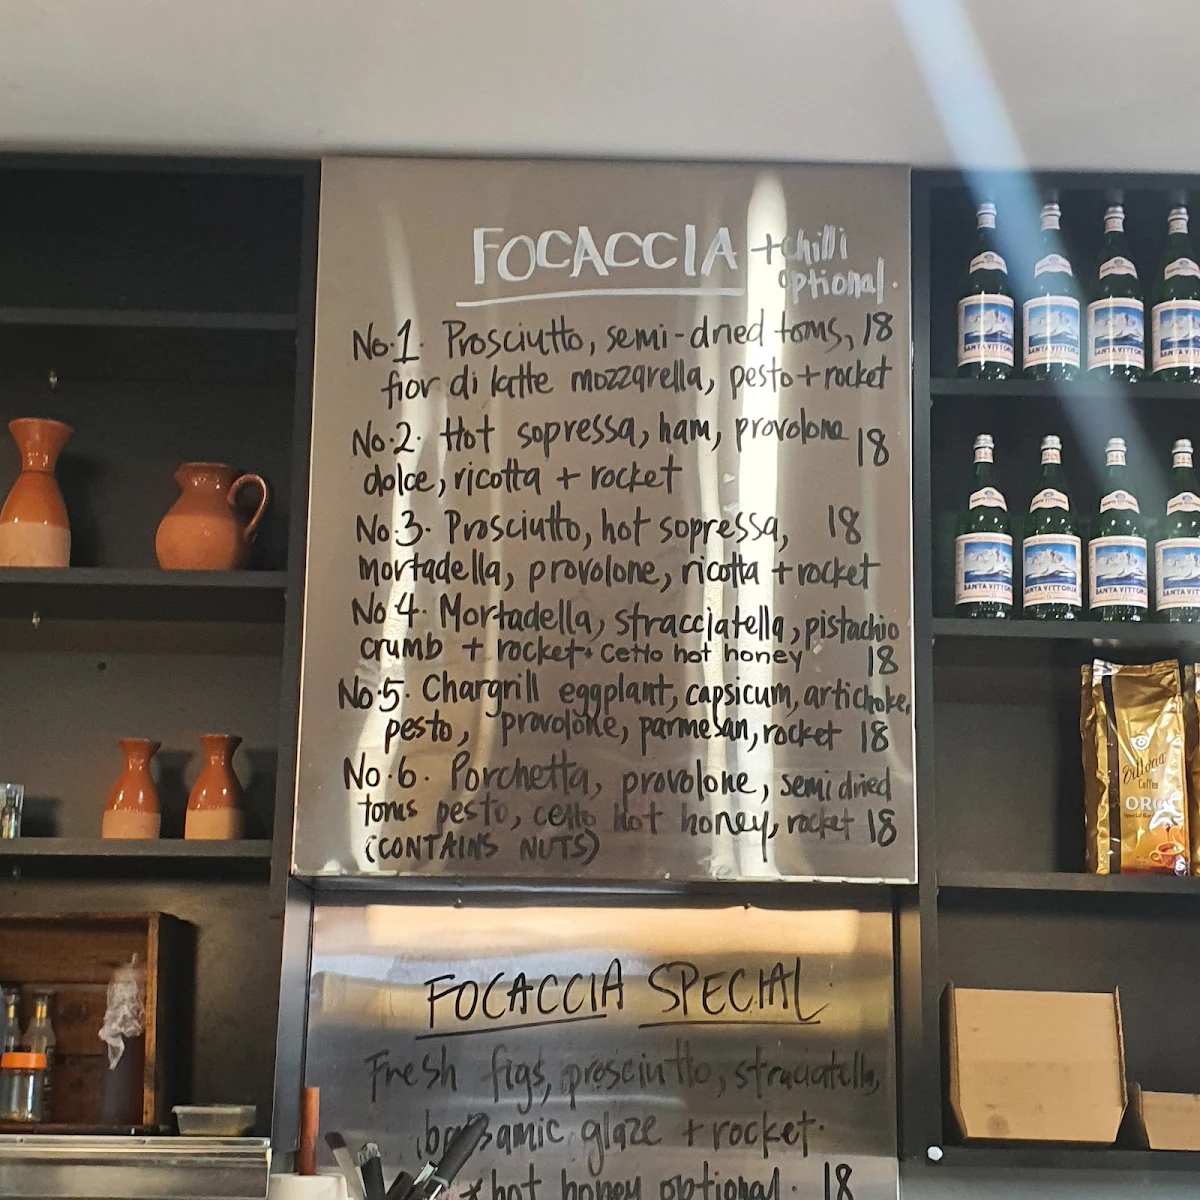 FOCACCIA + chilli
optional.
No.1. Prosciutto, semi-dried toms, 18
fior di latte mozzarella, pesto + rocket
No.2. Hot sopressa, ham, provolone 18
dolce, ricotta + rocket
No.3. Prosciutto, hot sopressa, 18
Mortadella, provolone, ricotta + rocket
No 4. Mortadella, stracciatella, pistachio
crumb + rocket + cetto hot honey 18
No.5. Chargrill eggplant, capsicum, artichoke,
pesto, provolone, parmesan, rocket 18
No.6. Porchetta, provolone, semi dried
toms pesto, cetto hot honey, rocket 18
(CONTAINS NUTS)
FOCACCIA SPECIAL.
Fresh figs, prosciutto, straciatella,
balsamic glaze + rocket.
* hot honey optional. 18
SANTA VITTORIA
SANTA VITTORIA
SANTA VITTORIA
SANTA VITTORIA
SANTA VITTORIA
SANTA VITTORIA
Vittoria
Coffee
ORO